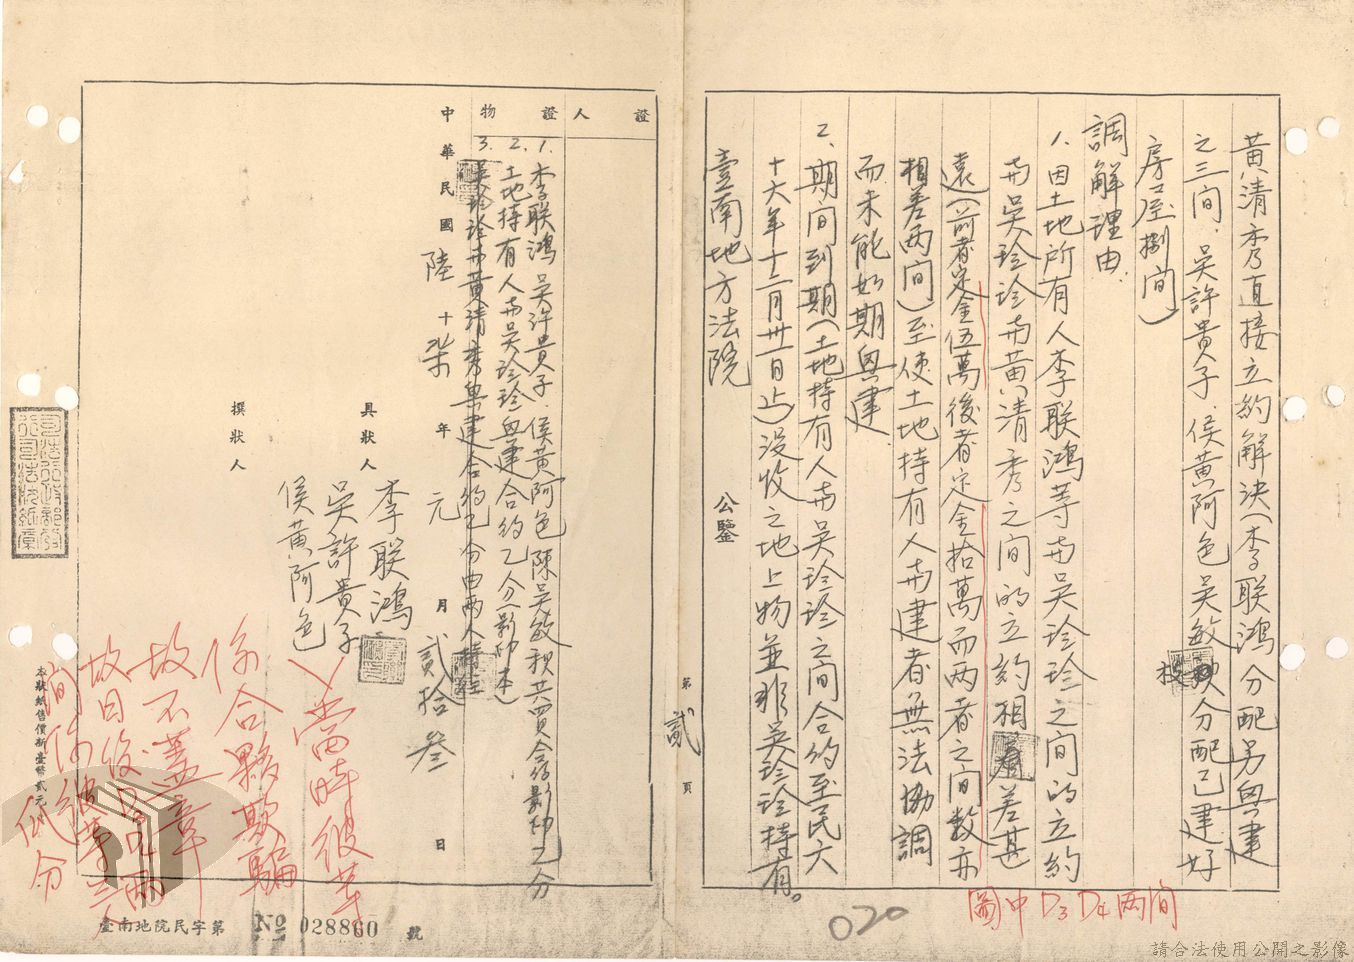 黃清秀直接立約解決(李联鴻分配另興建
之三间,吳許貴子、侯黃阿色吳敏枝分配已建好
房屋捌间)
調解理由:
1.因土地所有人李联鴻等与吳珍珍之间的立約
与吳珍珍与黃清秀之间的立約相差甚
遠(前者定金伍萬後者定金拾萬而兩者之间数亦
相差兩间)至使土地持有人与建者無法協調
而未能如期興建
2.期间到期(土地持有人与吳珍珍之间合約至民六
十六年十二月卅一日止)没收之地上物並非吳珍珍持有。
臺南地方法院
公鑒
圖中D3D4两间
020
第貳頁
證人
證物
1.李联鴻吳許貴子、侯黃阿色陳吳敏枝共買合約影印乙分
2.土地持有人与吳珍珍興建合約乙分(影印本)
3.吳珍珍与黃清秀興建合約乙分由两人持
中華民國陸十柒年元月貳拾叁日
具狀人
李联鴻
吳許貴子
侯黃阿色
撰狀人
當時彼等
係合夥欺騙
故不盖章
故日後
本狀紙售價新臺幣貳元
臺南地院民字第 No 028860 號
請合法使用公開之影像